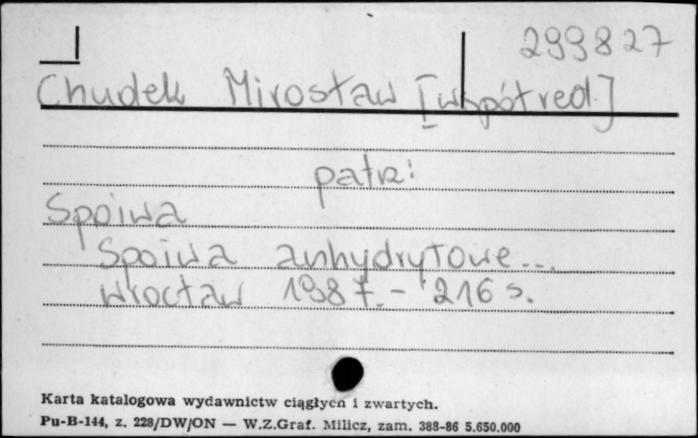 299827
Chudek Mirosław [współred.]
patrz:
Spoiwa
Spoiwa anhydrytowe...
Wrocław 1987. - 216 s.
Karta katalogowa wydawnictw ciągłych i zwartych.
Pu-B-144, z. 228/DW/ON — W.Z.Graf. Milicz, zam. 388-86 5.650.000